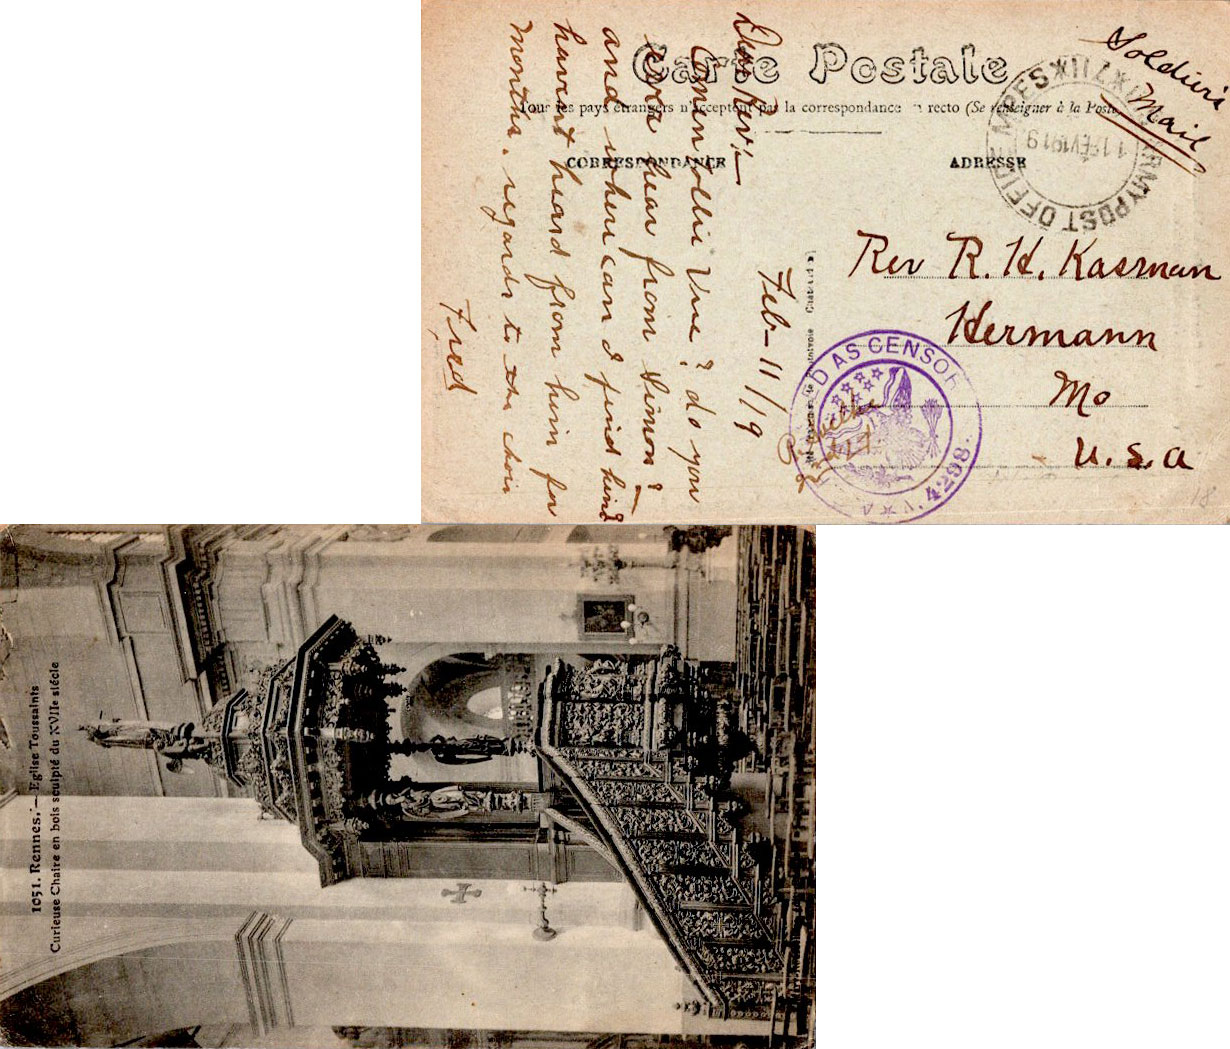 Carte Postale
Tous les pays étrangers n'acceptent pas la correspondance recto (Se renseigner à la Poste)
CORRESPONDANCE
ADRESSE
Soldier's
Mail
ARMY POST OFFICE
11 FEV 1919
Rev R. H. Kasman
Hermann
Mo
U.S.A
D AS CENSOR
4298
Feb-11/19
Dear Rev:-
Comen ollie Vue? do you
ever hear from Simon?
and where can I find him?
havent heard from him for
months. regards to the choir
Fred
1051. Rennes. — Eglise Toussaints
Curieuse Chaire en bois sculpté du XVIIe siècle